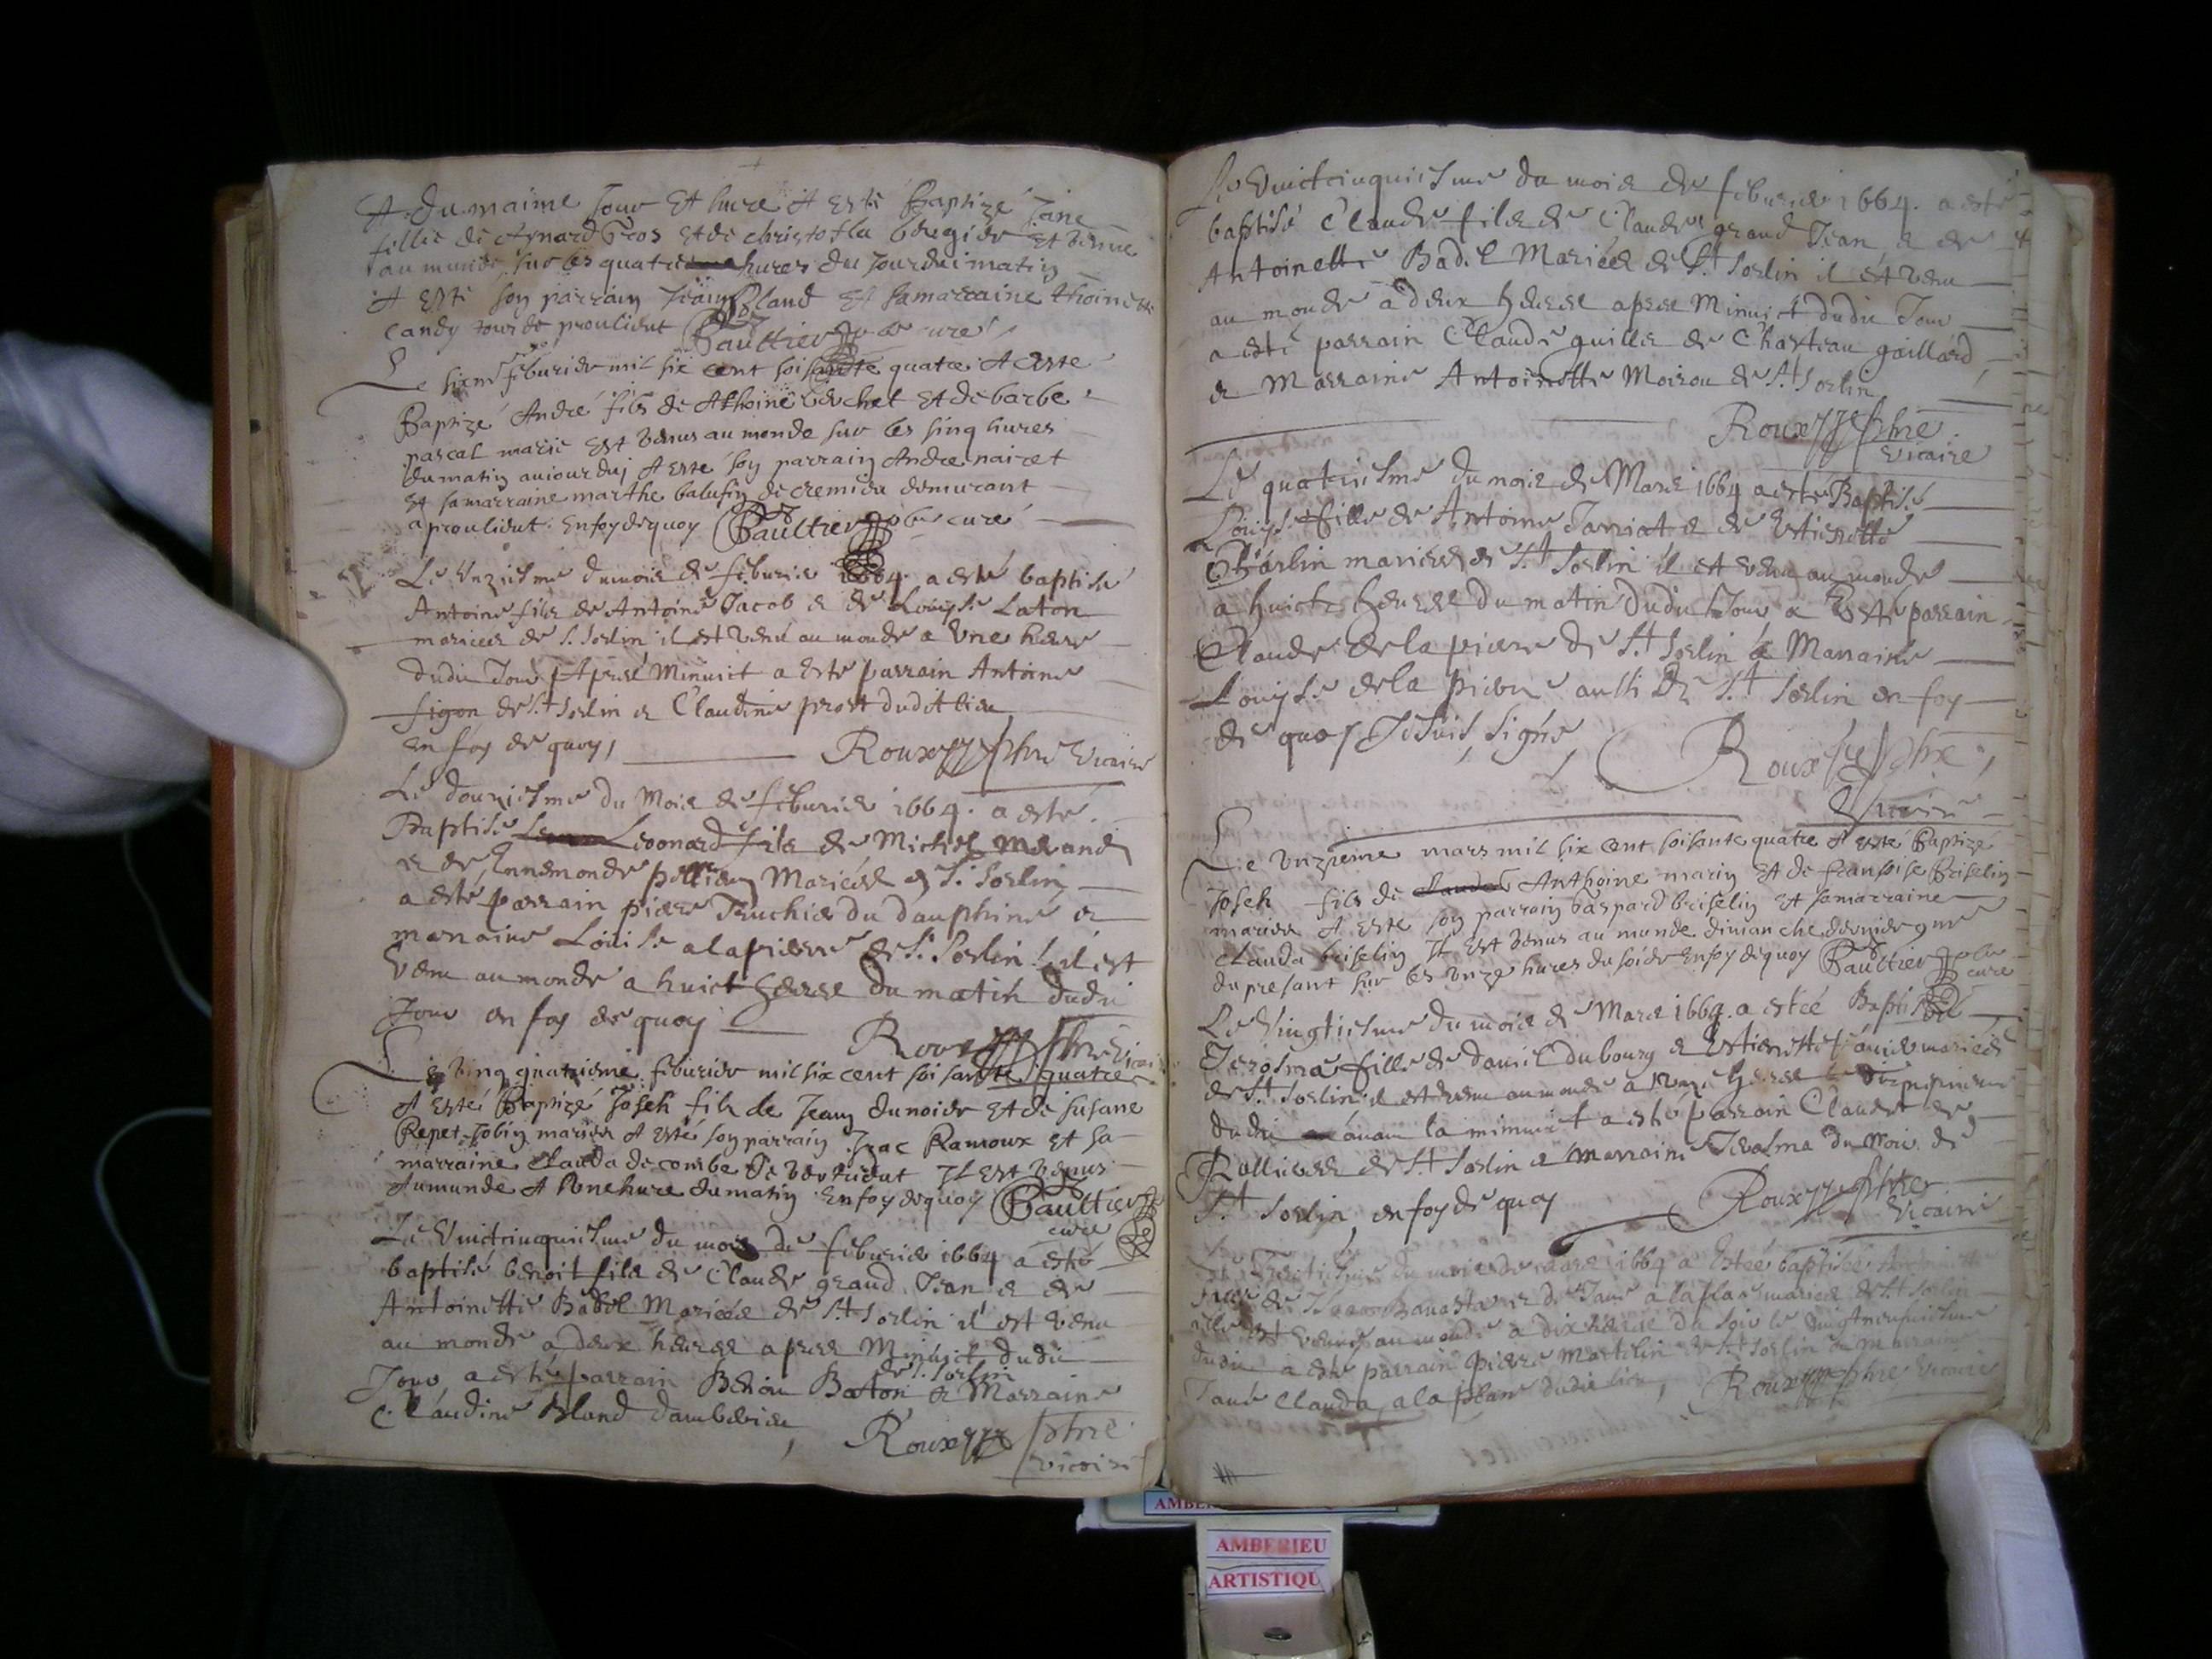 A du maime Jour Et hure A Esté Baptizé Jane
fillie de Aynard Gros Et de christofla Et venue
au munde sur les quatre hures du Jourdui matin
A Esté son parrain Jean Bland Et sa marraine thoinette
candy tour de proulieut Baultier curé
Le sixme feburier mil six cent soisante quatre A Esté
Baptizé André fils de Athoine berchet Et de barbe
pascal marie Est venus au monde sur les sinq hures
du matin aujourduj A Esté son parrain Andre nairet
Et sa marraine marthe balufin de cremieu demurant
a proulieut. En foy dequoy Baultier curé
Le unziesme du mois de feburier 1664. a esté baptisé
Antoine fils de Antoine Jacob et de Louyse Laton
mariees de S. Sorlin il est venu au monde a une heure
dudit Jour Apres Minuict a Esté parrain Antoine
figon de St Sorlin et Claudine prost dudit lieu
en foy de quoy, Roux ptre Vicaire
Le douziesme du Mois de feburier 1664. a esté
Baptisé Leonard fils de Michel Morand
et de Ennemonde Mariees de S. Sorlin
a esté parrain piere du dauphiné et
marraine Louise alapierre de S. Sorlin il est
venu au monde a huict heures du matin dudit
Jour en foy de quoy Roux ptre Vicaire
Le vingquatrieme feburier mil six cent soisante quatre
A Esté Baptizé Joseh fils de Jean dunoier Et de susane
Repet Jobin marier A Esté son parrain Izac Ramoux Et sa
marraine Clauda decombe de vertrieut Il Est venus
Aumunde A Une hure du matin En foy dequoy Baultier
curé
Le Vinctcinquiesme du mois de feburier 1664 a esté
baptisé benoit fils de Claude grand Jean et de
Antoinette Badel Mariees de St Sorlin il est venu
au monde a deux heures apres Minuict dudit
Jour a esté parrain Benoit Baton de S. Sorlin et Marraine
Claudine Bland dambérieu
Roux ptre
vicaire
Le Vinctcinquiesme du mois de feburier 1664. a esté
baptisé Claude fils de Claude grand Jean et de
Antoinette Badel Mariées de St Sorlin il est venu
au monde a deux heures apres Minuict dudit Jour
a esté parrain Claude quillet de Chasteau gaillard,
et Marraine Antoinette Moirou de St Sorlin
Roux ptre
vicaire
Le quatriesme du mois de Mars 1664 a esté Baptisé
Louyse fille de Antoine Janiat et de Estienette
Charlin mariees de St Sorlin il est venu au monde
a huicts heures du matin dudit Jour a Esté parrain
Claude de la piere de St Sorlin & Marraine
Louyse de la pierre aussi de St Sorlin en foy
de quoy Je suis signé,
Roux ptre,
Vicaire
Le unzieme mars mil six cent soisante quatre A Esté Baptizé
Joseh fils de Anthoine marin Et de fransoise Briselin
marier A Esté son parrain gaspard briselin Et sa marraine
Clauda briselin Il Est venus au munde dimanche dernier 9me
du presant sur les unze hures du soier En foy dequoy Baultier
curé
Le Vingtiesme du mois de Mars 1664. a estée Baptisée
Jerosma fille de daniel dubourg et Estienette mariees
de St Sorlin il est venu au monde a unze heures
dudit avant la minuict a esté parrain Claude de
Rollieres de St Sorlin et Marraine Jerosma du Noir de
St Sorlin, en foy de quoy Roux ptre
Vicaire
Le du mois de Mars 1664 a Estée baptisée Antoinette
fille de Jean et de Jane a la plas mariees de St Sorlin
elle est venue au monde a dix heures du soir le vingtneufuiesme
dudit a esté parrain Piere Martelin de St Sorlin et Marraine
Jane Clauda a la plane dudit lieu, Roux ptre Vicaire
AMBERIEU
ARTISTIQU